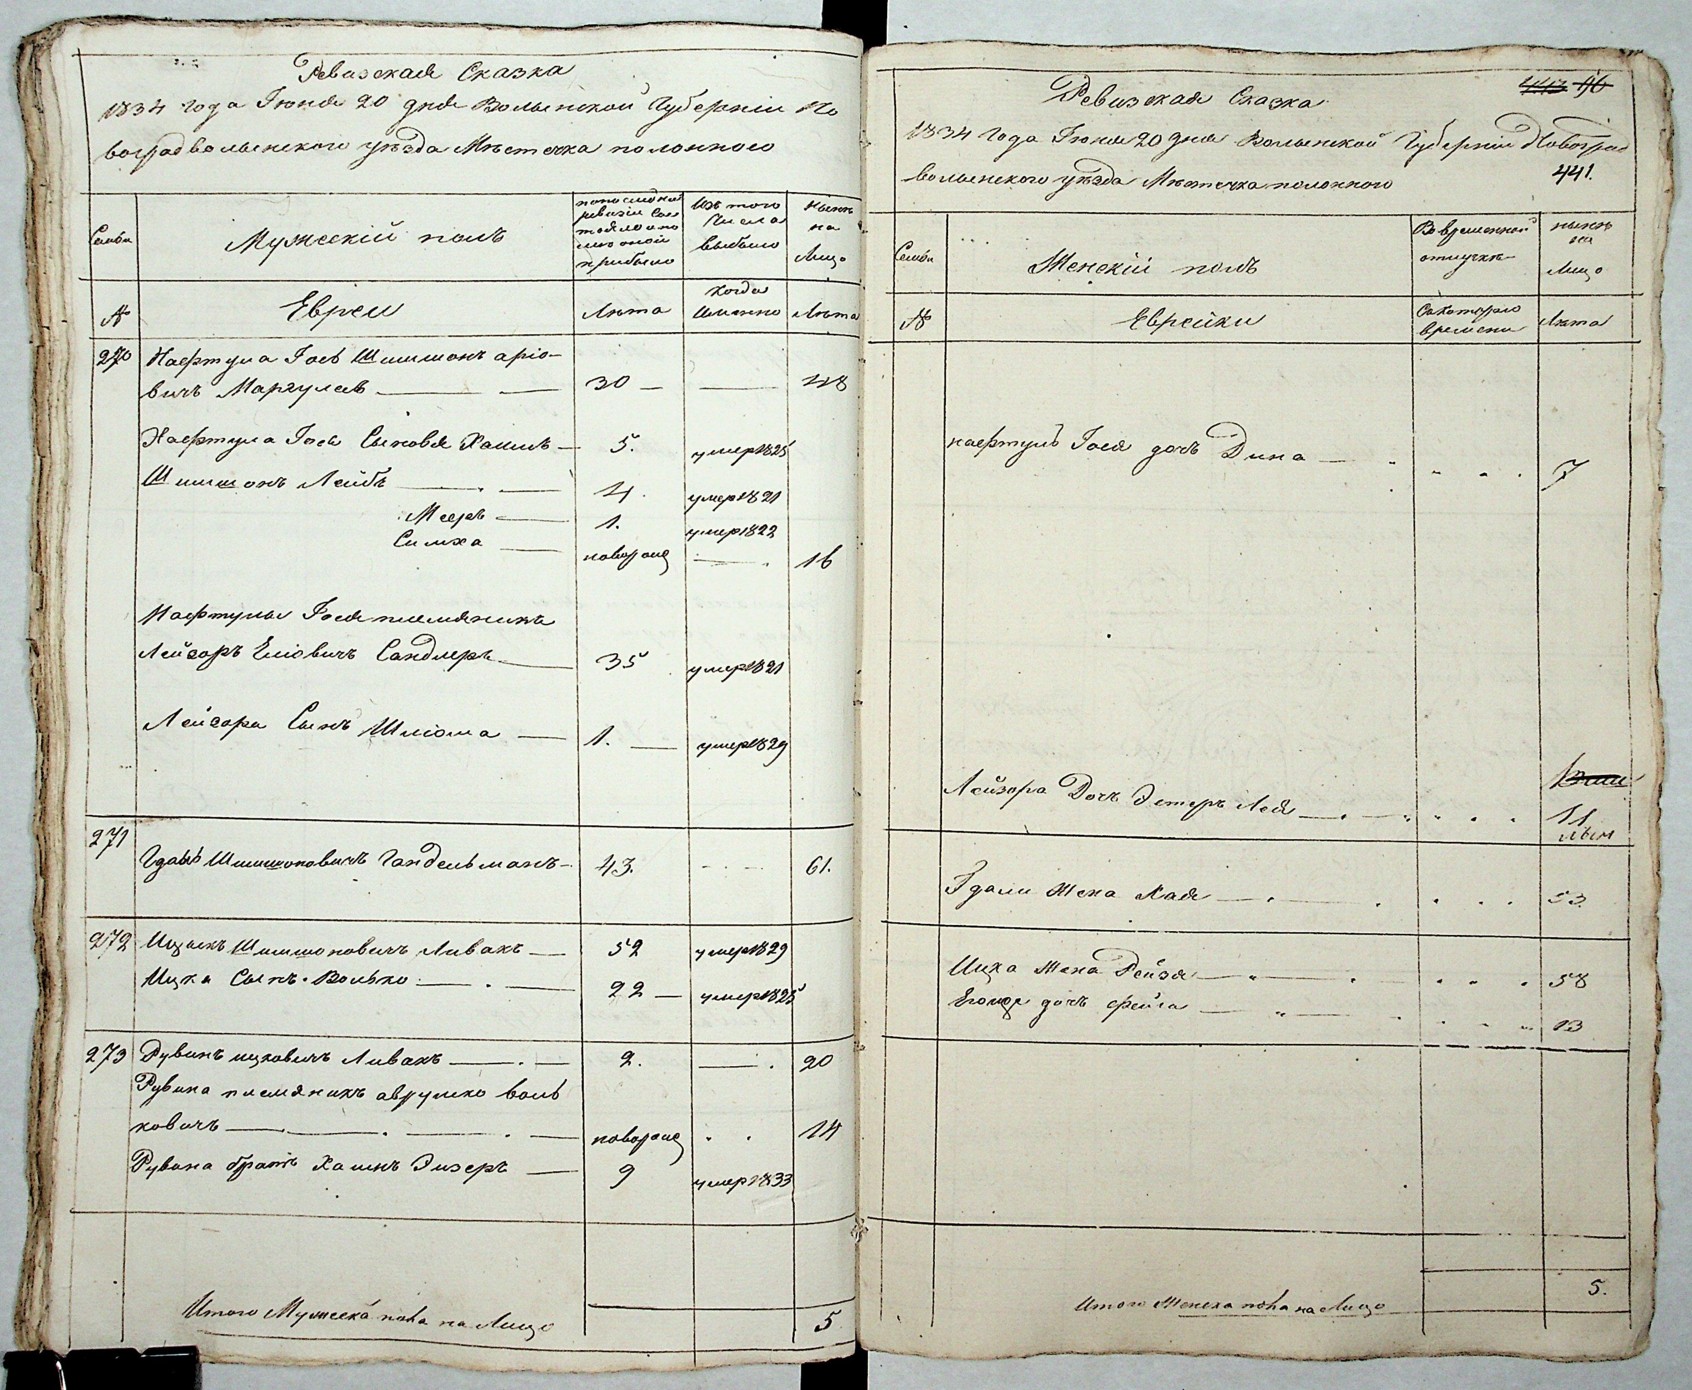 Ревизская Сказка
1834 года Іюня 20 дня Волынской Губерніи Но
воградволынского уѣзда Мѣстечка полонного
Семьи
Мужескій полъ
по последней ревизіи состояло и после оной прибыло
Изъ того числа выбыло
Нынѣ на Лицо
№
Евреи
Лѣта
когда имянно
Лѣта
270 Нафтула Іось Шимшонъ аріо-
вичъ Маргулев — 30 — 48
Нафтула Іося Сыновья Хаимъ — 5. умер 1825
Шимшонъ Лейбъ — 4. умер 1821
Мееръ — 1. умер 1822
Симха — новорож 16
Нафтулы Іося племяникъ
Лейзоръ Еліовичъ Сандлеръ — 35 умер 1821
Лейзора Сынъ Шліома — 1. — умер 1829
271
Гдаль Шимшоновичъ Гандельманъ — 43. 61.
272 Ицыкъ Шимшоновичъ Ливакъ — 52 умер 1829
Ицка Сынъ Волько — 22 — умер 1825
273 Рувинъ ицковичъ Ливакъ — 2. — 20
Рувина племяникъ аврумко воль
ковичъ — новорож 14
Рувина братъ Хаимъ Элзеръ — 9 умер 1833
Итого Мужеска пола на Лицо 5
96
Ревизская Сказка
1834 Года Іюня 20 дня Волынской Губерніи Новоград
441.
волынского уѣзда Мѣстечка полонного
Семьи
Женскій полъ
Во временной отлучкѣ
нынѣ на Лицо
№
Еврейки
Съ котораго времени
Лѣта
нафтулъ Іося дочь Дина — 7
Лейзора Дочь Эстеръ Лея — 11
лѣтъ
Гдали жена Хая — 53
Ицка жена Рейзя — 58
дочь фейга — 13
5.
Итого Женска пола на Лицо